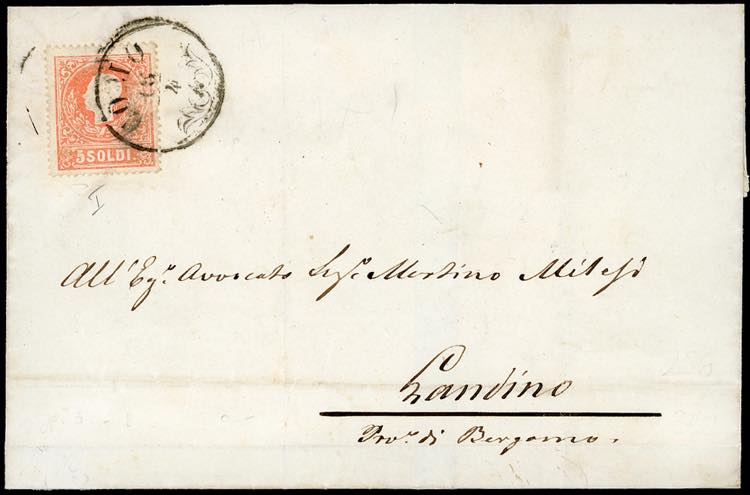 5 SOLDI
I
All' Egr. Avvocato Sigr. Martino Milesi
Gandino
Prov. di Bergamo.